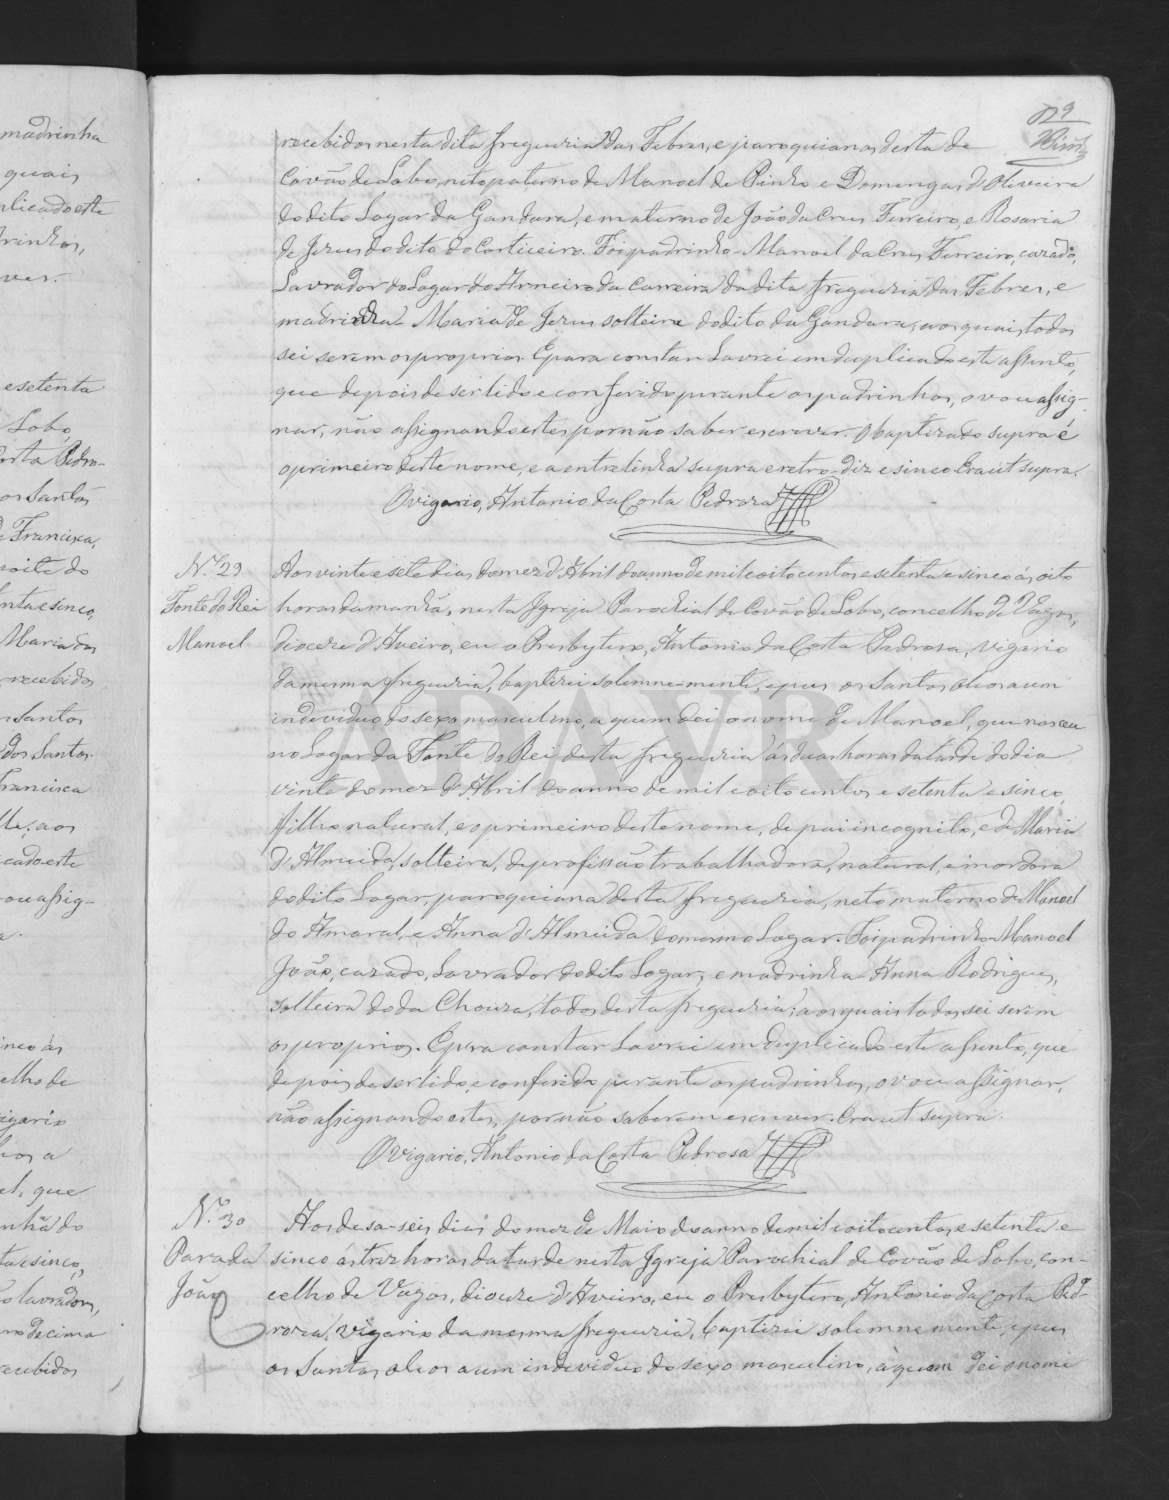 madrinha
quais
plicado este
drinhos,
ver.
e setenta
Lobo,
Costa Pedro-
os Santos
de Francisca,
noite do
enta e sinco,
Maria dos
recebidos
Santos
dos Santos
Francisca
lle, aos
cado este
ou assig-
sinco ás
celho de
vigario
hos a
el, que
nhã do
ta e sinco,
lavradores,
decima
recebidos
9
recebidos nesta dita freguezia das Febres, e paroquianos desta de
Covão de Lobo, neto paterno de Manoel de Pinho e Domingas d'Oliveira
do dito Logar da Gandara, e materno de João da Crus Ferreiro, e Rosaria
de Jezus do dito do Corticeiro. Foi padrinho Manoel da Crus Ferreiro, cazado,
Lavrador do Logar do Arneiro da Carreira da dita freguezia das Febres, e
madrinha Maria de Jezus solteira do dito da Gandara, aos quais todos
sei serem os proprios. E para constar Lavrei em duplicado este assento,
que depois de ser lido e conferido perante os padrinhos, o vou assig-
nar, não assignando estes por não saber escrever. O baptizado supra é
o primeiro deste nome, e a entrelinha supra e retro diz e sinco Era ut supra.
O vigario, Antonio da Costa Pedroza
N.º 29
Fonte do Rei
Manoel
Aos vinte e sete dias do mez d'Abril do anno de mil e oito centos e setenta e sinco ás oito
horas da manhã, nesta Igreja Parochial de Covão de Lobo, concelho de Vagos,
dioceze d'Aveiro, eu o Presbytero, Antonio da Costa Pedrosa, vigario
da mesma freguezia, baptizei solemne-mente, e pus os Santos oleos a um
individuo do sexo masculino, a quem dei o nome de Manoel, que nasceu
no Logar da Fonte do Rei desta freguezia ás duas horas da tarde do dia
vinte do mez d'Abril do anno de mil e oito centos e setenta e sinco,
filho natural, e o primeiro deste nome, de pai incognito, e de Maria
d'Almeida, solteira, de profissão trabalhadora, natural, e moradora
do dito Logar, paroquiana desta freguezia, neto materno de Manoel
do Amaral, e Anna d'Almeida do mesmo Logar. Foi padrinho Manoel
João, cazado, Lavrador do dito Logar, e madrinha Anna Rodrigues,
solteira do da Chouza, todos desta freguezia; aos quais todos sei serem
os proprios. E para constar Lavrei em duplicado este assento, que
depois de ser lido, e conferido perante os padrinhos, o vou assignar,
não assignando estes, por não saberem escrever. Era ut supra.
O vigario, Antonio da Costa Pedrosa
N.º 30
Parada
João
Aos desa-seis dias do mez de Maio do anno de mil e oito centos, e setenta e
sinco ás trez horas da tarde nesta Igreja Parochial de Covão de Lobo, con-
celho de Vagos, dioceze d'Aveiro, eu o Presbytero, Antonio da Costa Ped-
roza, vigario da mesma freguezia, baptizei solemne mente, e pus
os Santos oleos a um individuo do sexo masculino, a quem dei o nome
ADAVR